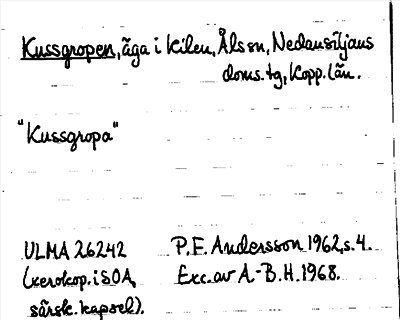 Kussgropen, äga i Kilen, Åls sn, Nedansiljans
doms. tg, Kopp. län.
"Kussgropa"
ULMA 26242
(xerokop. i SOA,
särsk. kapsel).
P. E. Andersson 1962, s. 4.
Exc. av A-B. H. 1968.